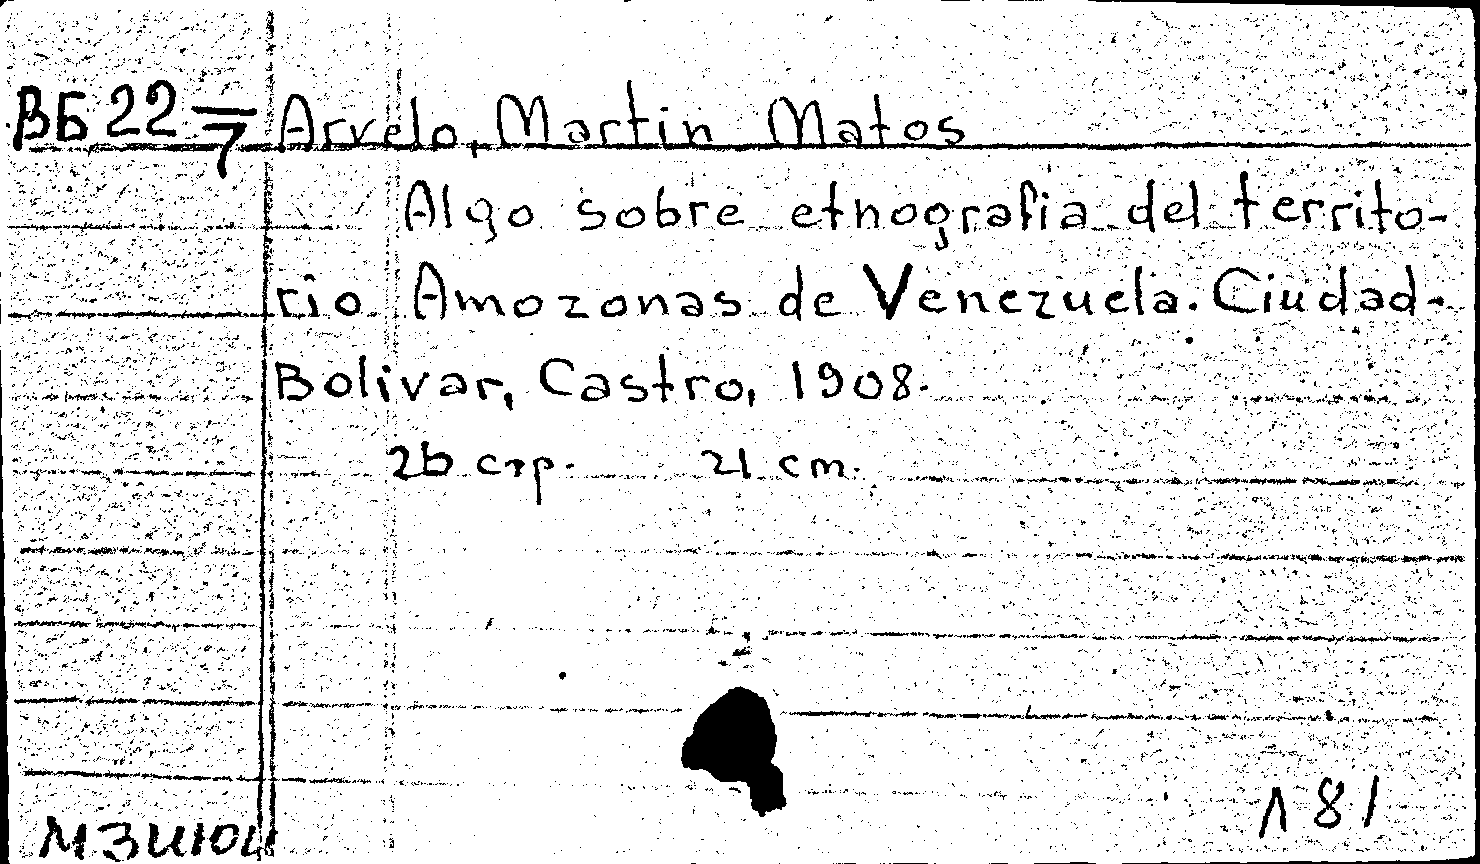 ВБ 22 = 7 Arvelo, Martin Matos
Algo sobre etnografia del territo-
rio Amozonas de Venezuela. Ciudad-
Bolivar, Castro, 1908.
26 стр. 21 см.
Л 81